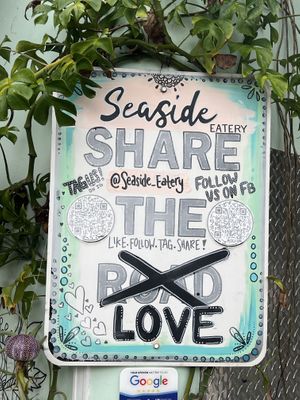 Seaside
EATERY
SHARE
TAG US!
@Seaside_Eatery
FOLLOW
US ON FB
THE
LIKE. FOLLOW. TAG. SHARE!
ROAD
LOVE
Google